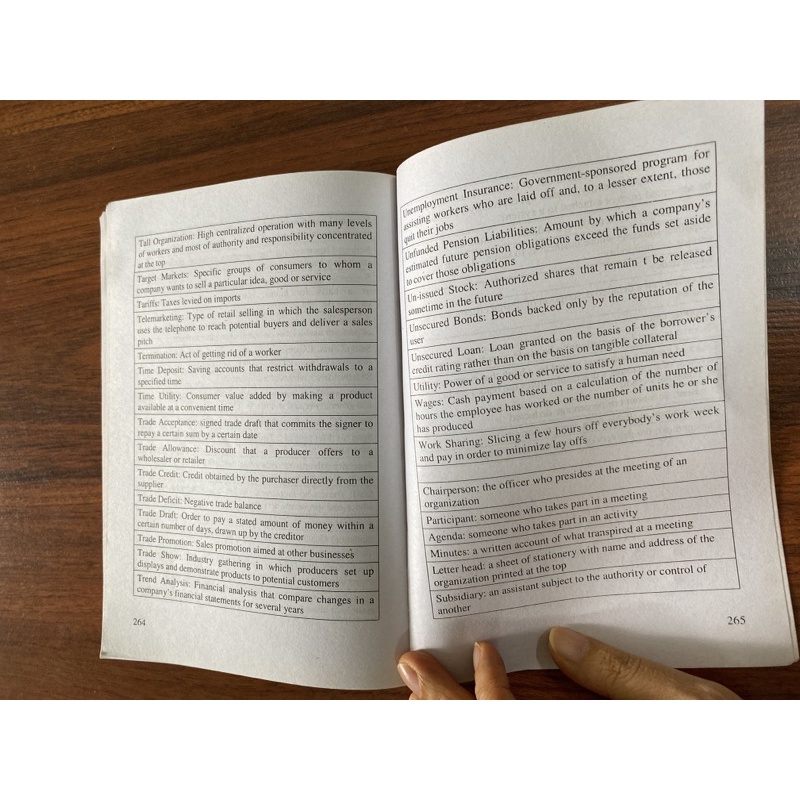 Tall Organization: High centralized operation with many levels
of workers and most of authority and responsibility concentrated
at the top
Target Markets: Specific groups of consumers to whom a
company wants to sell a particular idea, good or service
Tariffs: Taxes levied on imports
Telemarketing: Type of retail selling in which the salesperson
uses the telephone to reach potential buyers and deliver a sales
pitch
Termination: Act of getting rid of a worker
Time Deposit: Saving accounts that restrict withdrawals to a
specified time
Time Utility: Consumer value added by making a product
available at a convenient time
Trade Acceptance: signed trade draft that commits the signer to
repay a certain sum by a certain date
Trade Allowance: Discount that a producer offers to a
wholesaler or retailer
Trade Credit: Credit obtained by the purchaser directly from the
supplier
Trade Deficit: Negative trade balance
Trade Draft: Order to pay a stated amount of money within a
certain number of days, drawn up by the creditor
Trade Promotion: Sales promotion aimed at other businesses
Trade Show: Industry gathering in which producers set up
displays and demonstrate products to potential customers
Trend Analysis: Financial analysis that compare changes in a
company's financial statements for several years
264
Unemployment Insurance: Government-sponsored program for
assisting workers who are laid off and, to a lesser extent, those
quit their jobs
Unfunded Pension Liabilities: Amount by which a company's
estimated future pension obligations exceed the funds set aside
to cover those obligations
Un-issued Stock: Authorized shares that remain t be released
sometime in the future
Unsecured Bonds: Bonds backed only by the reputation of the
user
Unsecured Loan: Loan granted on the basis of the borrower's
credit rating rather than on the basis on tangible collateral
Utility: Power of a good or service to satisfy a human need
Wages: Cash payment based on a calculation of the number of
hours the employee has worked or the number of units he or she
has produced
Work Sharing: Slicing a few hours off everybody's work week
and pay in order to minimize lay offs
Chairperson: the officer who presides at the meeting of an
organization
Participant: someone who takes part in a meeting
Agenda: someone who takes part in an activity
Minutes: a written account of what transpired at a meeting
Letter head: a sheet of stationery with name and address of the
organization printed at the top
Subsidiary: an assistant subject to the authority or control of
another
265